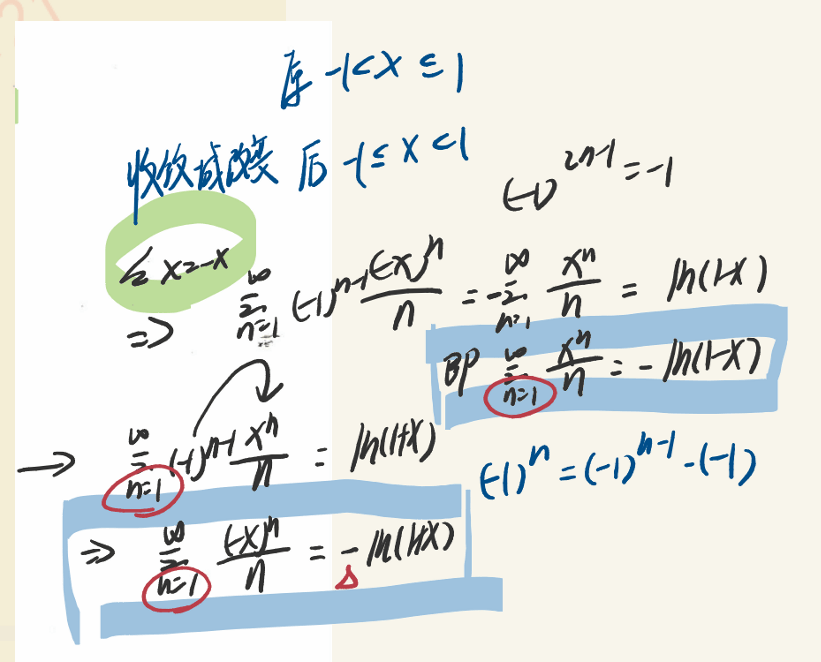 原 -1<x≤1
收敛域改变 后 -1≤x<1
(-1)^{2n-1}=-1
令 x=-x
=> ∑_{n=1}^{∞} (-1)^{n-1} (-x)^n/n = -∑_{n=1}^{∞} x^n/n = ln(1-x)
即 ∑_{n=1}^{∞} x^n/n = -ln(1-x)
→ ∑_{n=1}^{∞} (-1)^{n-1} x^n/n = ln(1+x)
(-1)^n = (-1)^{n-1} - (-1)
=> ∑_{n=1}^{∞} (-x)^n/n = -ln(1+x)